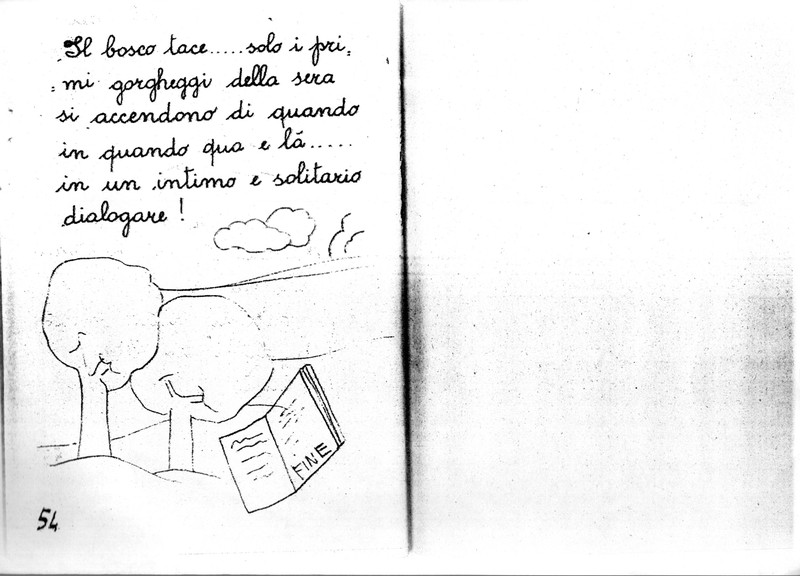 Il bosco tace.....solo i pri=
=mi gorgheggi della sera
si accendono di quando
in quando qua e lá.....
in un intimo e solitario
dialogare!
FINE
54